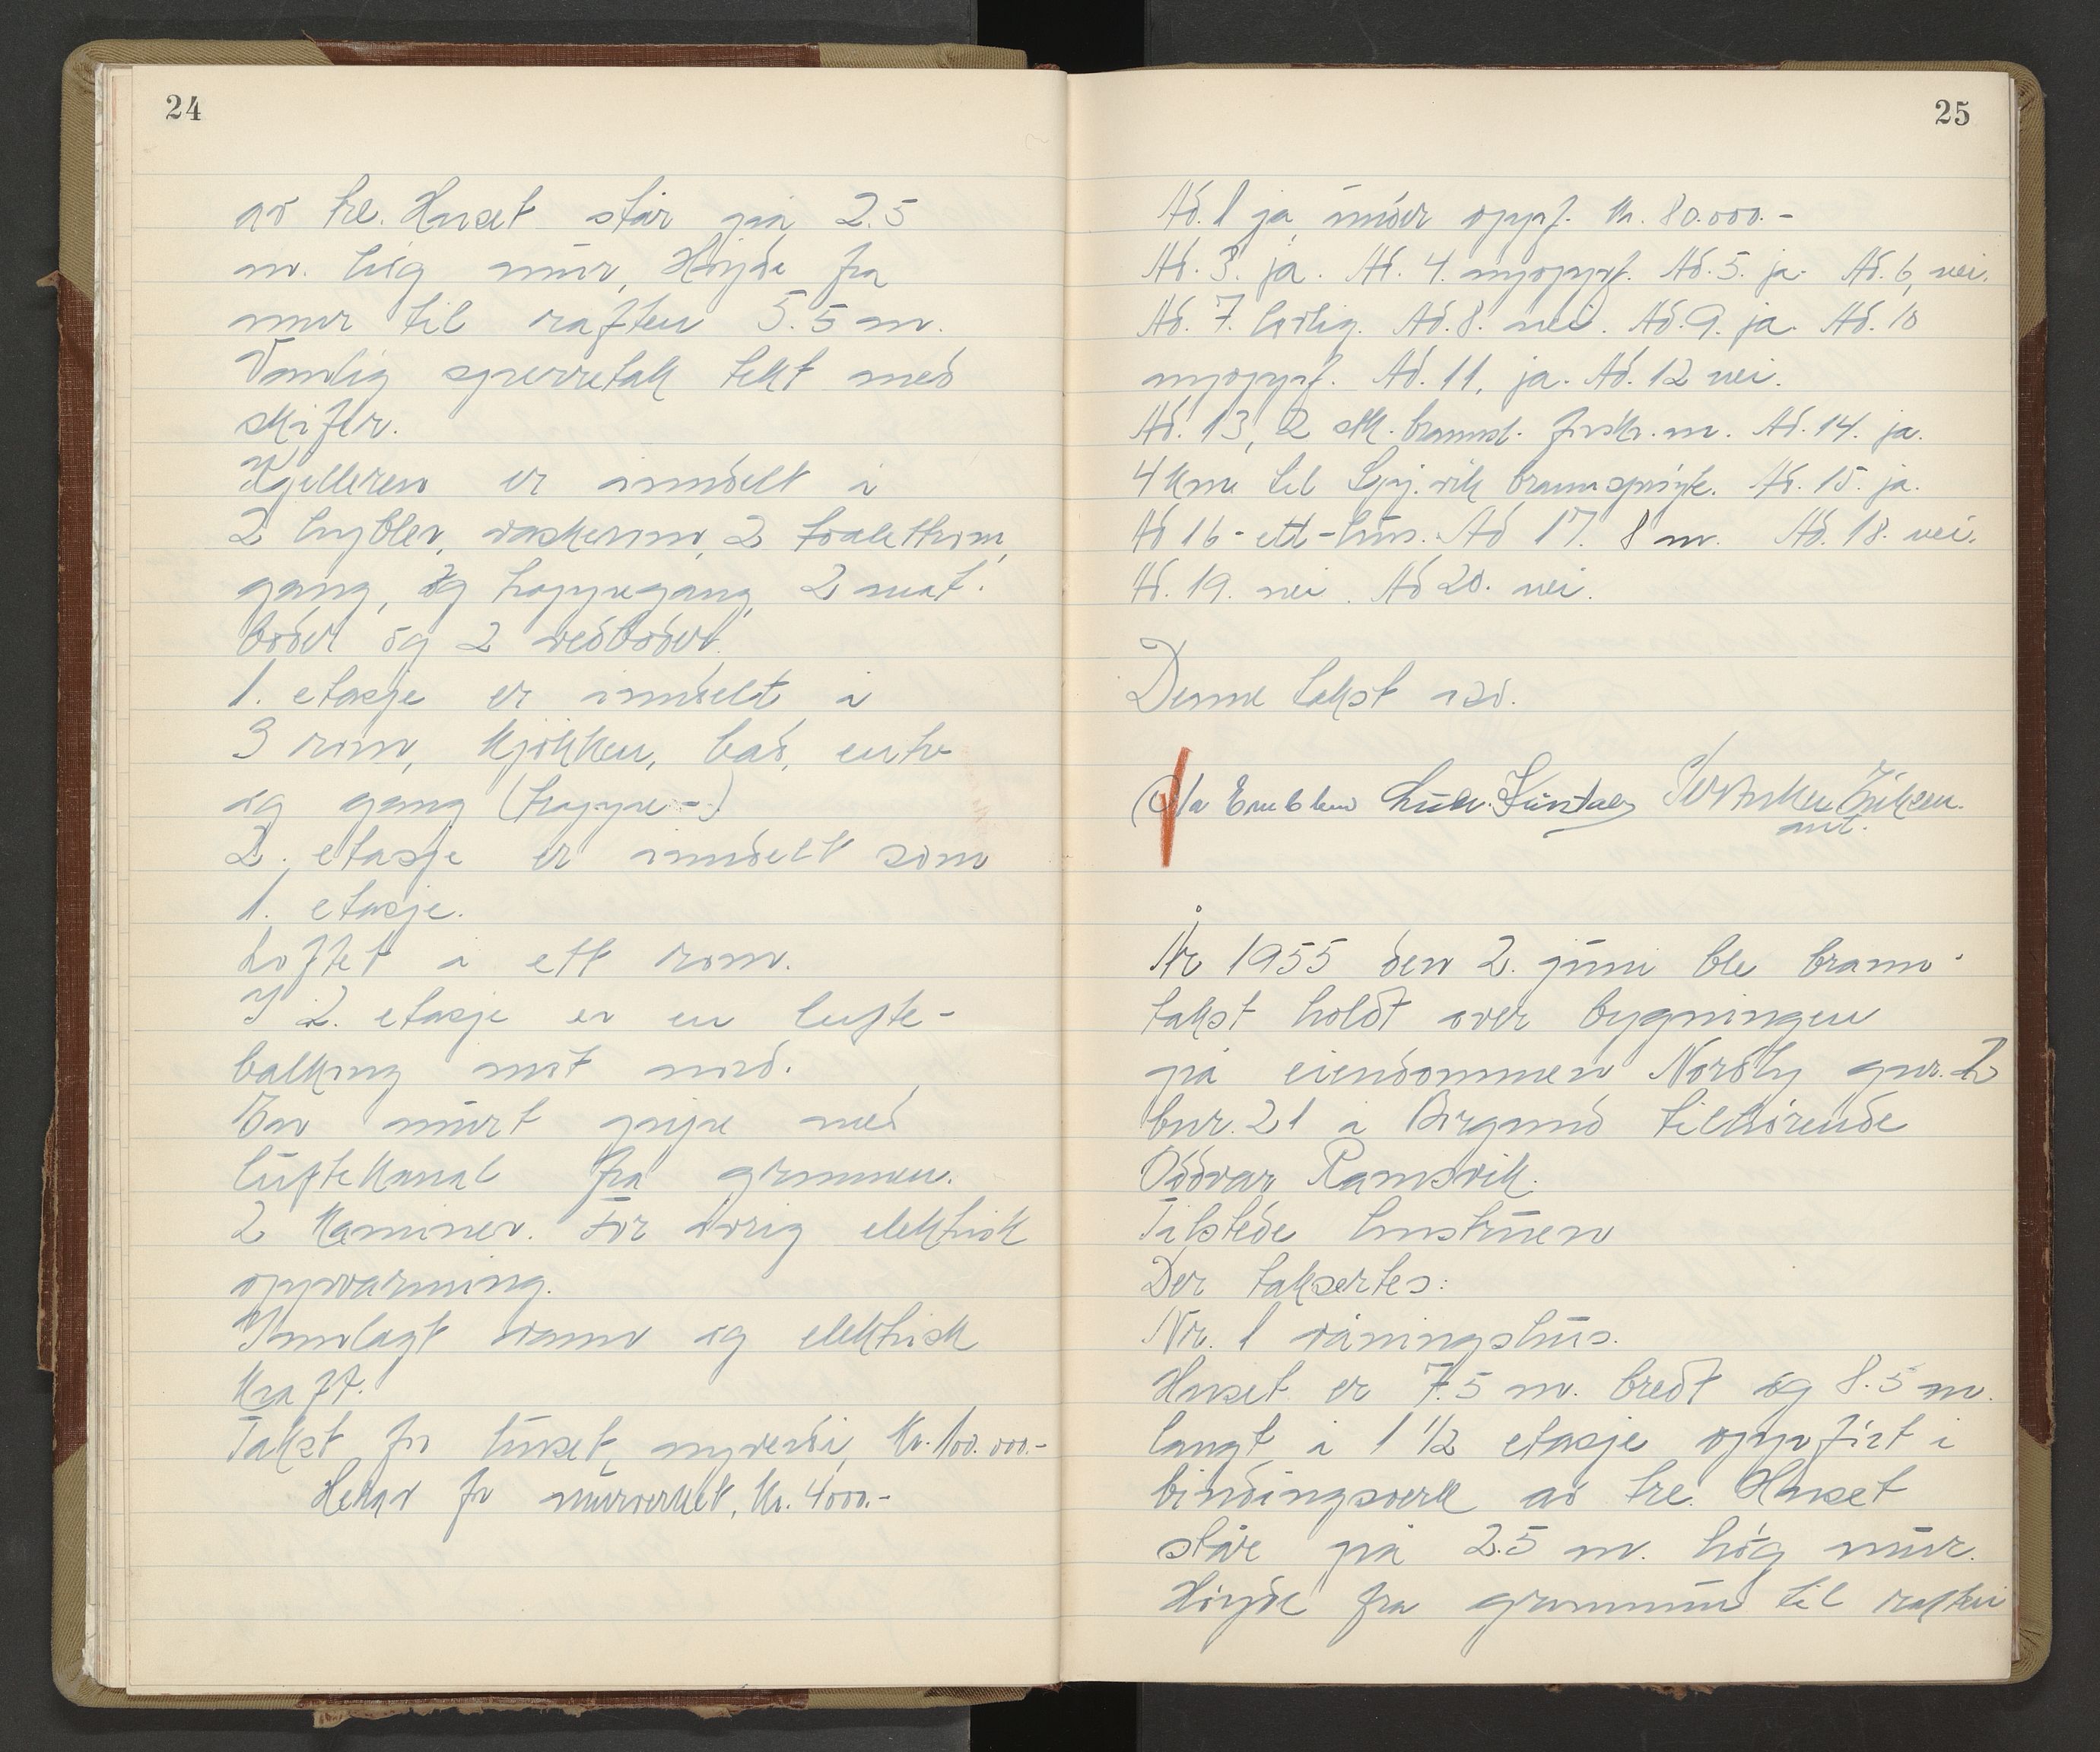 24
av tre. Huset står på 2.5
m. høg mur, Høyde fra
mur til raften 5.5 m.
Vanlig sperretak tekt med
skifer.
Kjelleren er inndelt i
2 hybler, vaskerom, 2 toalettrom,
gang, og trappegang, 2 mat-
boder og 2 vedboder.
1. etasje er inndelt i
3 rom, kjøkken, bad, entre
og gang (trappe-)
2. etasje er inndelt som
1. etasje.
Loftet i ett rom.
I 2. etasje er en lufte-
balkong mot nord.
En murt pipe med
luftekanal fra grunnen.
2 kaminer. For øvrig elektrisk
oppvarming.
Innlagt vann og elektrisk
kraft.
Takst for huset, nyverdi, kr. 100.000.-
Herav for murverket, kr. 4000.-
25
Ad. 1 ja, under oppf. kr. 80.000.-
Ad. 3. ja. Ad. 4. nyoppf. Ad. 5. ja. Ad. 6, nei.
Ad. 7. lovlig. Ad. 8. nei. Ad. 9. ja. Ad. 10
nyoppf. Ad. 11, ja. Ad. 12 nei.
Ad. 13, 2 stk. brannst. forskr. m. Ad. 14. ja.
4 km til Spj.vik brannsprøyte. Ad. 15. ja.
Ad 16 - ett - hus. Ad 17. 8 m. Ad. 18. nei.
Ad. 19. nei. Ad 20. nei.
Denne takst
Ola Emblem
ant.
År 1955 den 2. juni ble brann-
takst holdt over bygningen
på eiendommen Nordly gnr. 2
bnr. 21 i Borgund tilhørende
Oddvar Ramsvik.
Tilstede hustruen
Der taksertes:
Nr. 1 våningshus.
Huset er 7.5 m. bredt og 8.5 m.
langt i 1 1/2 etasje oppført i
bindingsverk av tre. Huset
står på 2.5 m. høg mur.
Høyde fra grunnmur til raften